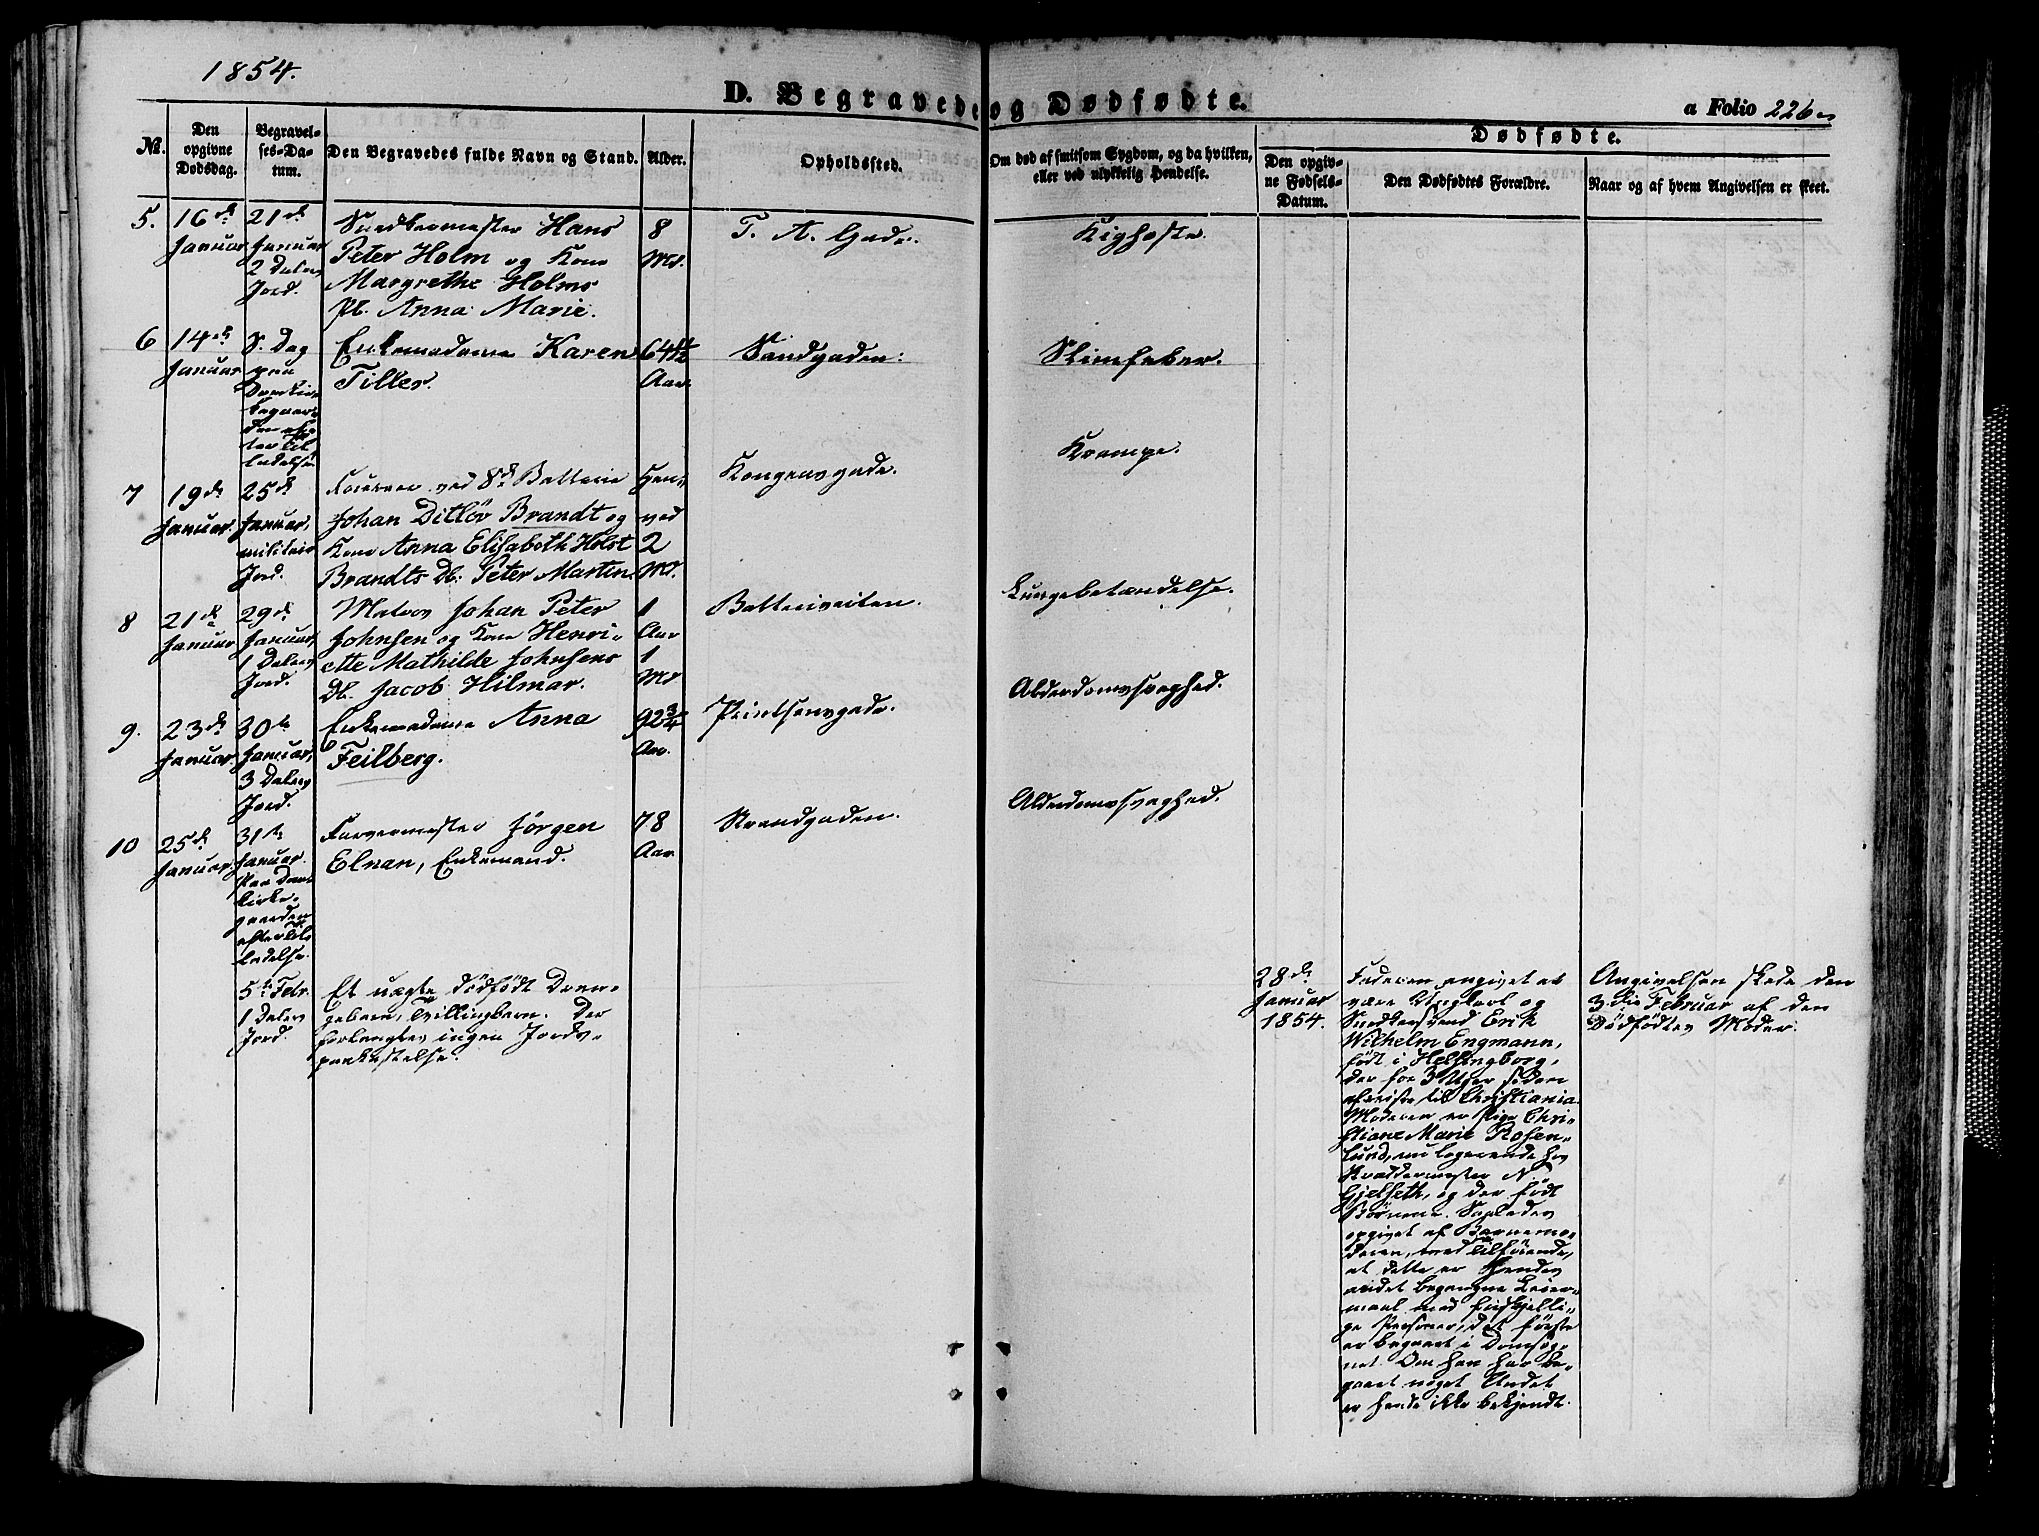 1854.
D. Begravede og Dødfødte.
a Folio 226
No.
Den opgivne Dødsdag.
Begravelses-Datum.
Den Begravedes fulde Navn og Stand.
Alder.
Opholdssted.
Om død af smitsom Sygdom, og da hvilken, eller ved ulykkelig Hendelse.
Dødfødte.
Den opgivne Fødsels-Datum.
Den Dødfødtes Forældre.
Naar og af hvem Angivelsen er skeet.
5.
16de
Januar
21de
Januar
2 Dalers
Jord.
Snedkermester Hans
Peter Holm og Kone
Margrethe Holms
Pb. Anna Marie.
8
Md.
T. A. Gade.
Kighoste.
6
14de
Januar
S. Dag
paa
Domkir-
kegaar-
den ef-
ter Til-
ladelse
Enkemadame Karen
Tiller.
64½
Aar
Sandgaden.
Sliimfeber.
7
19de
Januar
25de
Januar,
militair
Jord.
Foureer ved 8de Batterie
Johan Ditløv Brandt og
Kone Anna Elisabeth Holst
Brandts Db. Peter Martin.
Hen-
ved
2
Md.
Kongensgade.
Krampe.
8
21de
Januar
29de
Januar,
1 Dalers
Jord.
Matros Johan Peter
Johnsen og Kone Henri-
ette Mathilde Johnsens
Db. Jacob Hilmar.
1
Aar
1
Md.
Batteriveiten.
Lungebetændelse.
9.
23de
Januar
30te
Januar,
3 Dalers
Jord.
Enkemadame Anna
Feilberg.
92¾
Aar.
Printsensgade.
Alderdomssvaghed.
10
25de
Januar
31te
Januar.
Paa Dom-
kirke-
gaarden
efter Til-
ladelse.
Farvermester Jørgen
Elnan, Enkemand.
78
Aar
Strandgaden.
Alderdomssvaghed.
5te Febr.
1 Dalers
Jord.
Et uægte dødfødt Dren-
gebarn, Tvillingbarn. Der
forlangtes ingen Jords-
paakastelse.
28de
Januar
1854.
Faderen angivet at
være Ungkarl og
Snedkersvend Erik
Wilhelm Engmann,
født i Helsingborg,
der for 3 Uger siden
afreiste til Christiania.
Moderen er Pige Chri-
stiane Marie Rosen-
lund, nu logerende hos
Skræddermester N.
Gjelseth, og der født
Børnene. Saaledes
opgivet af Barnemo-
deren, med Tilføiende,
at dette er Hendes
andet begangne Leier-
maal med forskjelli-
ge Personer, det første
er begaaet i Domsog-
net. Om han har be-
gaaet noget Andet
er hende ikke bekjendt.
Angivelsen skede den
3die Februar af den
Dødfødtes Moder.